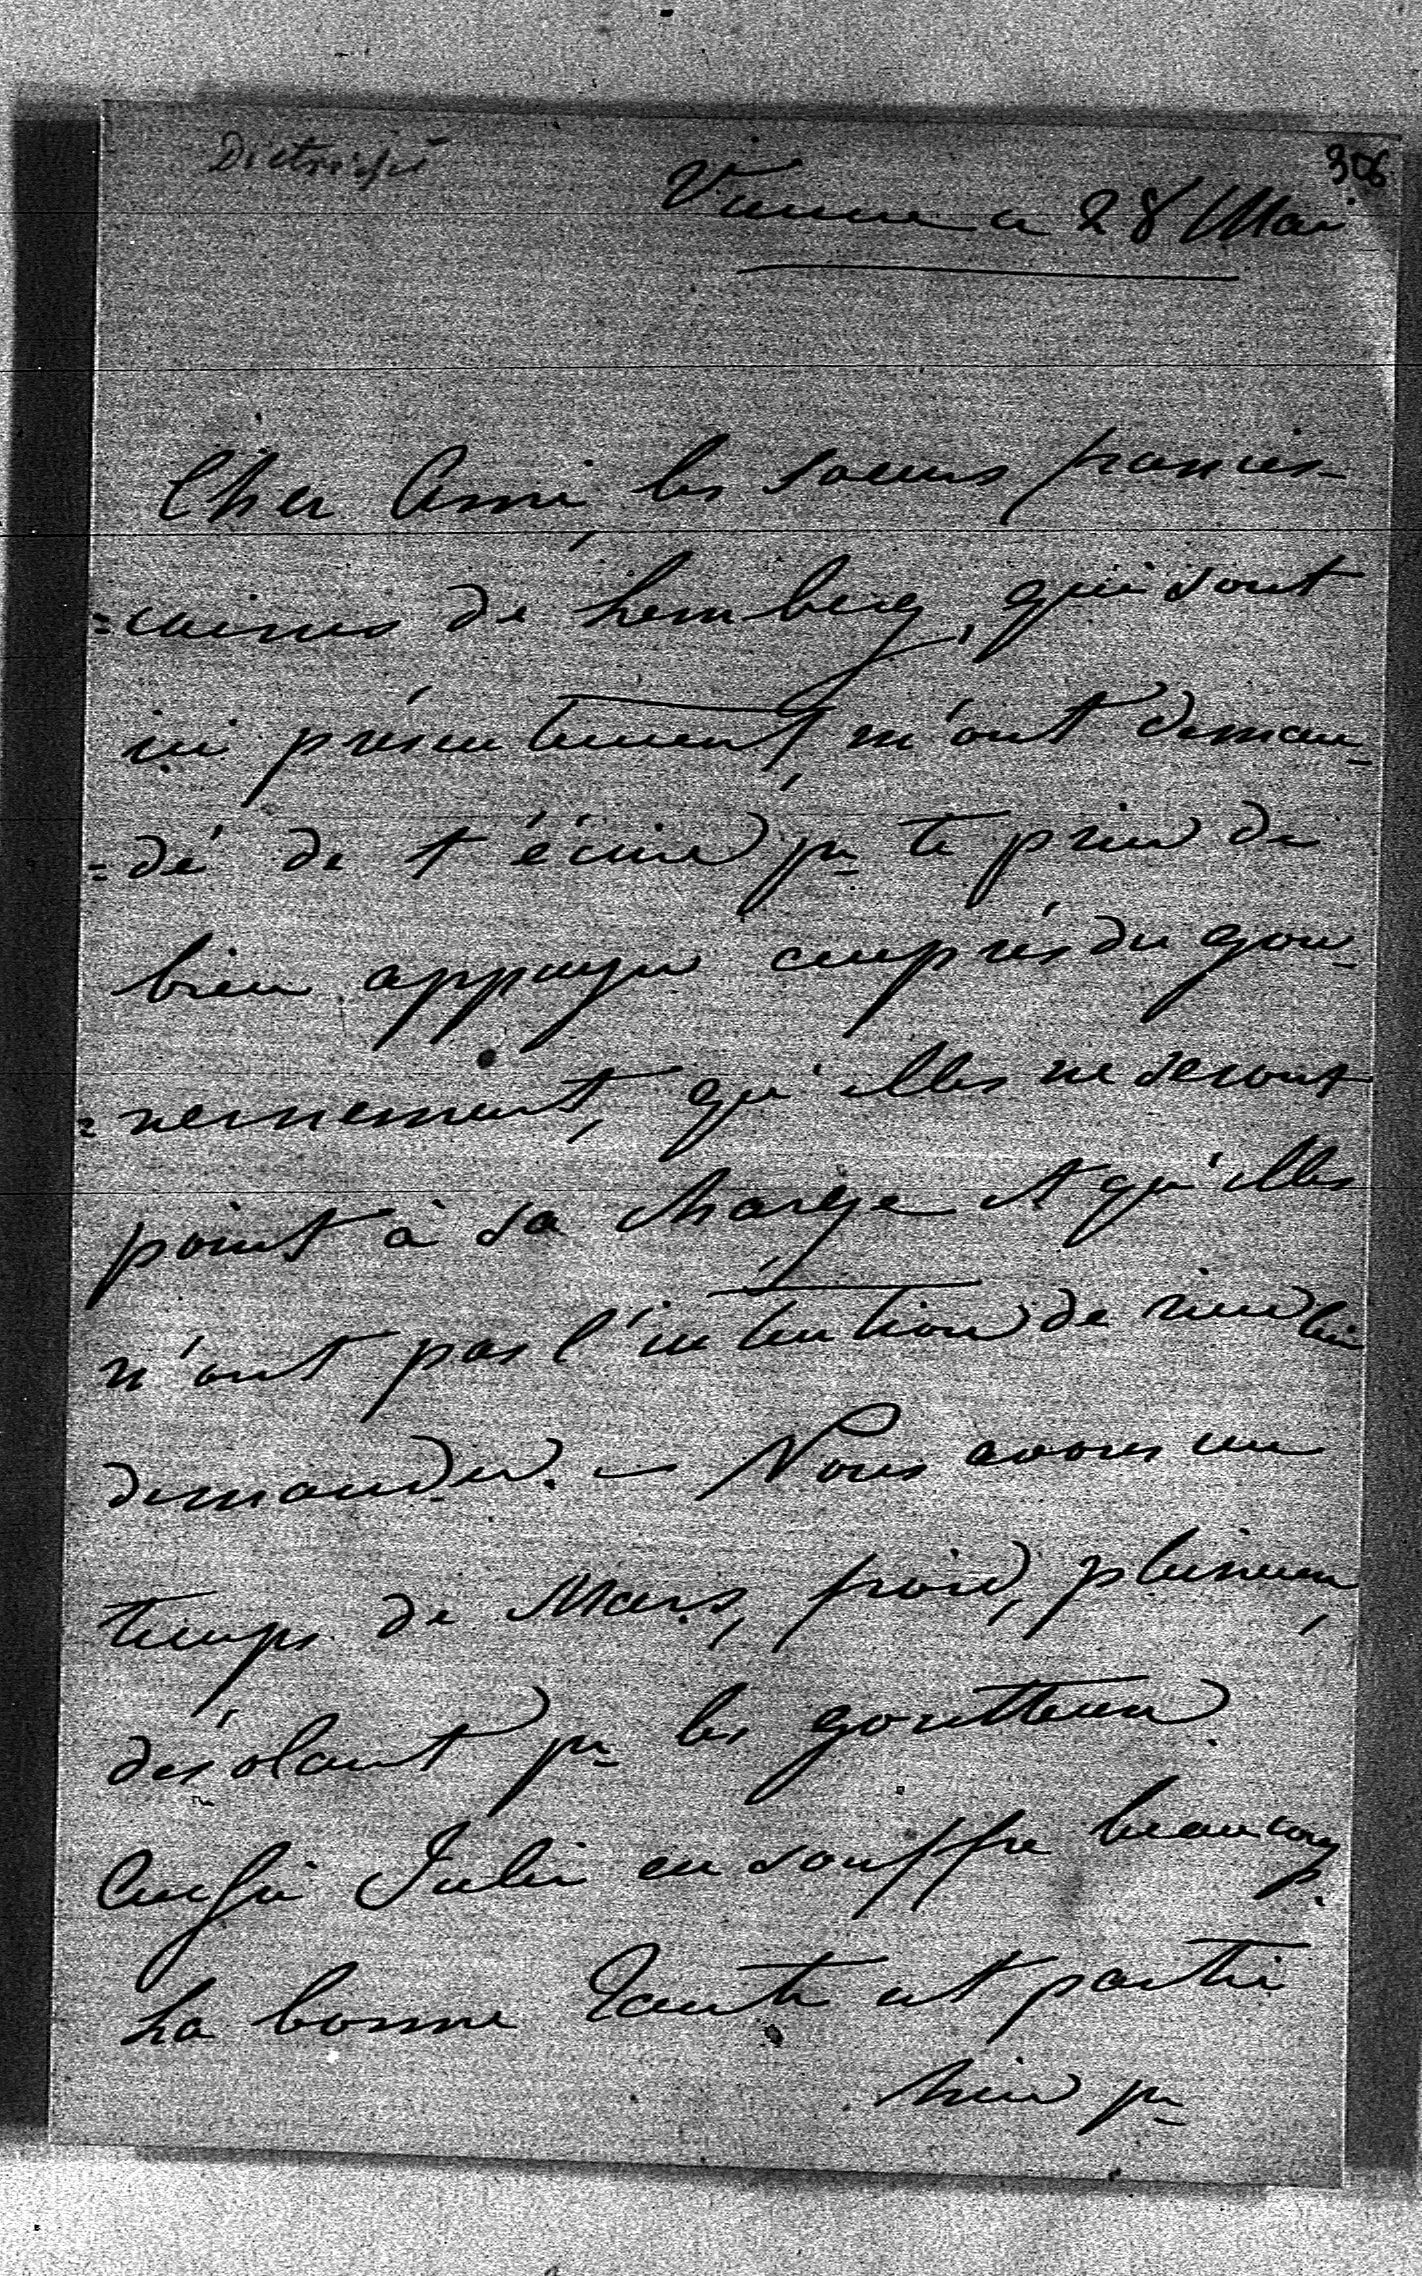 306
Vienne ce 28 Mai
Cher Ami, les soeurs francis-
=caines de Lemberg, qui sont
ici présentement, m'ont deman-
=dé de t'écrire pr te prier de
bien appuyer auprès du gou-
=vernement, qu'elles ne seront
point à sa charge et qu'elles
n'ont pas l'intention de rien lui
demander. — Nous avons un
temps de Mars, froid, pluvieux,
désolant pr les goutteux.
Aussi Julie en souffre beaucoup.
La bonne Tante est partie
hier pr